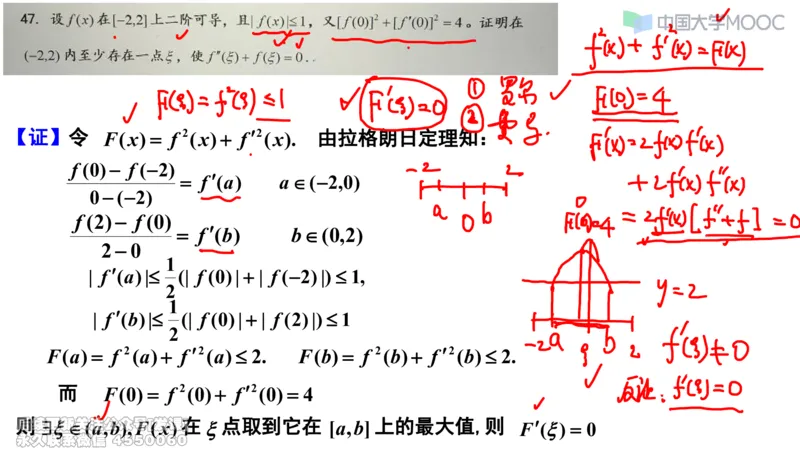 47. 设 f(x) 在[−2,2]上二阶可导，且|f(x)|≤1，又[f(0)]²+[f′(0)]²=4。证明在
(−2,2) 内至少存在一点ξ，使 f″(ξ)+f(ξ)=0.
中国大学MOOC
f²(x)+f′²(x)=F(x)
F(0)=4
F′(x)=2f(x)f′(x)
+2f′(x)f″(x)
=2f′(x)[f″+f]=0
F(ξ)=f²(ξ)≤1
F′(ξ)=0
① 罗尔
②
【证】令 F(x)=f²(x)+f′²(x). 由拉格朗日定理知：
f(0)−f(−2)/0−(−2)=f′(a) a∈(−2,0)
f(2)−f(0)/2−0=f′(b) b∈(0,2)
-2 a 0 b 2
|f′(a)|≤1/2(|f(0)|+|f(−2)|)≤1,
|f′(b)|≤1/2(|f(0)|+|f(2)|)≤1
F(a)=f²(a)+f′²(a)≤2. F(b)=f²(b)+f′²(b)≤2.
而 F(0)=f²(0)+f′²(0)=4
则 ∃ξ∈(a,b),F(x)在ξ点取到它在 [a,b]上的最大值,则 F′(ξ)=0
F(0)=4
y=2
-2 a ξ b 2
f′(ξ)≠0
反证：f′(ξ)=0
永久联系微信 4550060